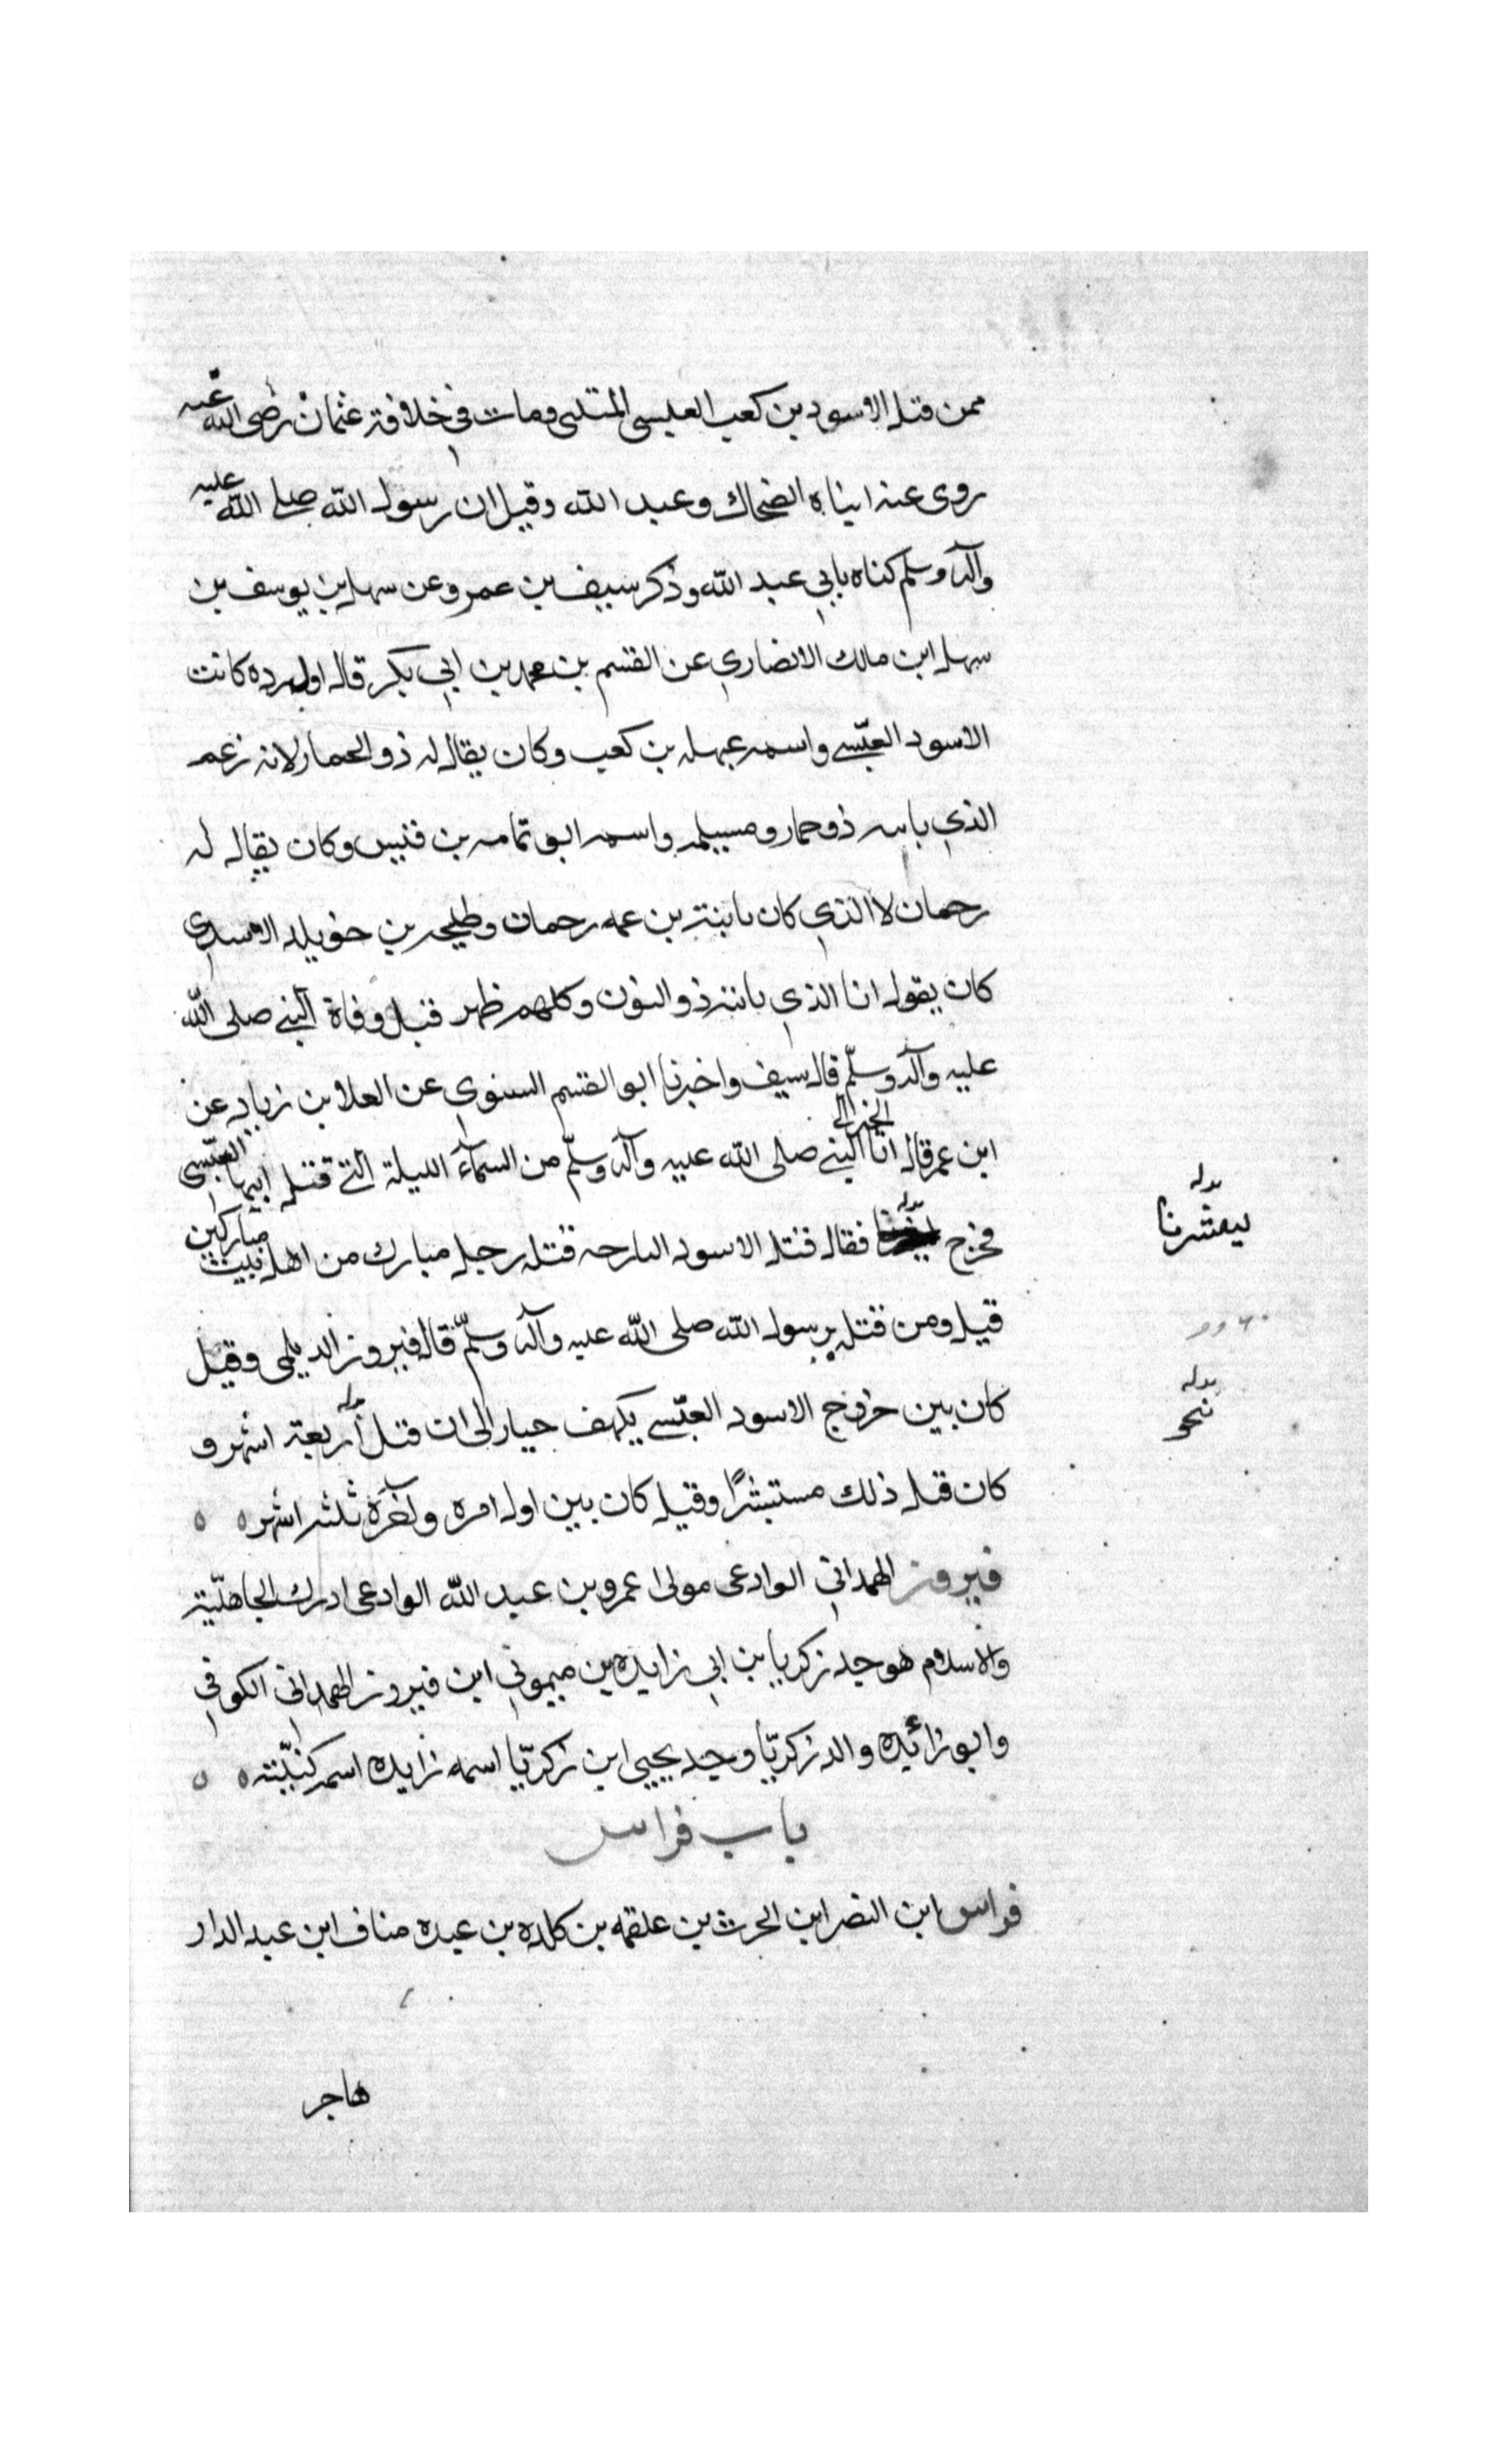 ممن قتل الاسود بن كعب العبسى المتنبى ومات فى خلافة عثمان رضى الله عنه
روى عنه ابناه الضحاك وعبد الله وقيل ان رسول الله صلى الله عليه
وآله وسلم كناه بابي عبد الله وذكر سيف بن عمر وعن سهل بن يوسف بن
سهل ابن مالك الانصاري عن القسم بن محمد بن ابي بكر قال اول رده كانت
الاسود العبّسے واسمه عبهله بن كعب وكان يقال له ذو الحمار لانه زعم
الذي ياتيه ذو حمار ومسيلمه واسمه ابو تمامه بن قيس وكان يقال له
رحمان لا الذي كان ياتيه بن عمه رحمان وطليحه بن خويلد الاسدي
كان يقول انا الذي ياتيه ذو النون وكلهم ظهر قبل وفاة النبے صلى الله
عليه وآله وسلّم قال سيف واخبرنا ابو القسم السنوي عن العلا بن زياد عن
ابن عمر قال اتا الخبر الى النبے صلى الله عليه وآله وسلّم من السمآء الليلة التے قتل فيها العبّسى
فخرج فقال قتل الاسود البارحه قتله رجل مبارك من اهل بيت مباركين
قيل ومن قتله يرسول الله صلى الله عليه وآله وسلّم قال فيروز الديلمى وقيل
كان بين خروج الاسود العبّسے بكهف حبار الى ان قتل أربعة اشهر و
كان قبل ذلك مستبشرًا وقيل كان بين اول امره وآخره ثلثه اشهر ٥ ٥
فيروز الهمداني الوادعى مولى عمرو بن عبد الله الوادعى ادرك الجاهليّة
والاسلام هو جد زكريا بن ابي زايده بن ميمون ابن فيروز الهمداني الكوفي
وابو زائيده والد زكريّا وجد يحيى ابن زكريّا اسمه زايده اسمه كنيّته ٥ ٥
باب فراس
فراس ابن النضر ابن الحرث بن علقمه بن كلده بن عبده مناف ابن عبد الدار
هاجر
بدله
ليبشرنا
بدله
نحو